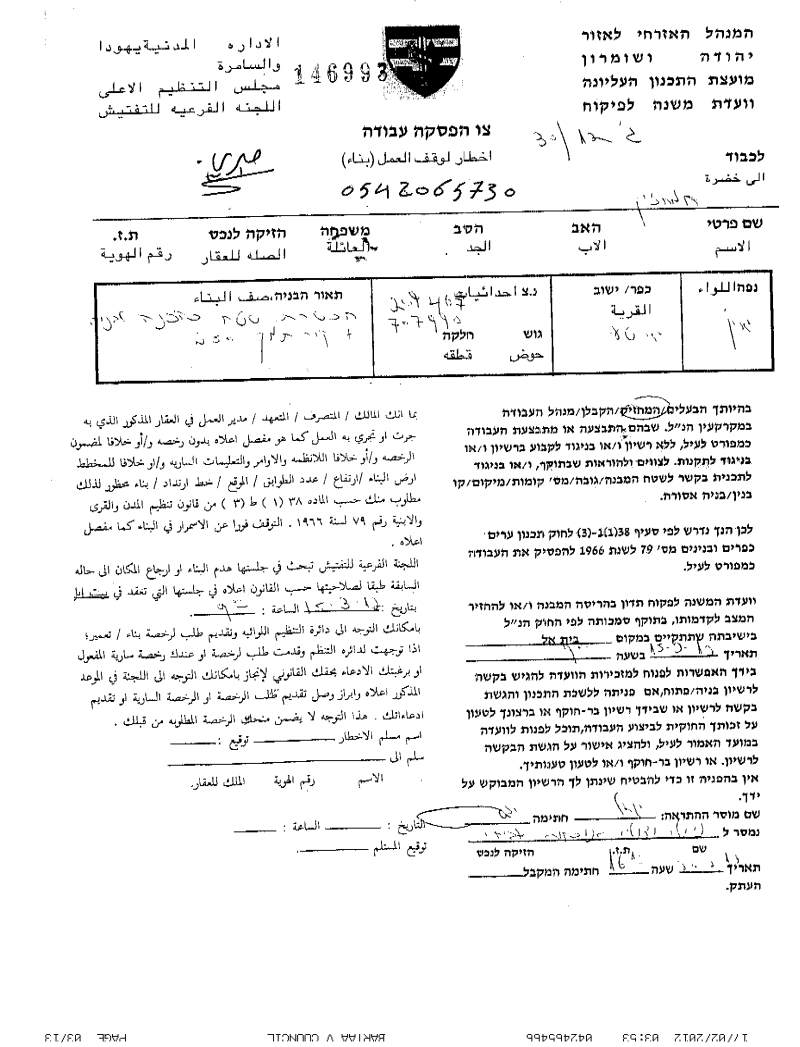 המנהל האזרחי לאזור
יהודה ושומרון
מועצת התכנון העליונה
וועדת משנה לפיקוח
الاداره المدنية يهودا
والسامرة
مجلس التنظيم الاعلى
اللجنه الفرعيه للتفتيش
146993
צו הפסקה עבודה
اخطار لوقف العمل (بناء)
0542065730
לכבוד
الى خضرة
שם פרטי האב הסב משפחה הזיקה לנכס ת.ז.
الاسم الاب الجد العائلة الصله للعقار رقم الهوية
נפה اللواء כפר/ ישוב נ.צ احداثيات תאור הבניה، صف البناء
القرية
גוש חלקה
حوض قطقه
בהיותך הבעלים/המחזיק/הקבלן/מנהל העבודה
במקרקעין הנ"ל. שבהם התבצעה או מתבצעת העבודה
כמפורט לעיל, ללא רשיון ו/או בניגוד לקבוע ברשיון ו/או
בניגוד לתקנות. לצווים ולהוראות שבתוקף, ו/או בניגוד
לתכנית בקשר לשטח המבנה/גובה/מס' קומות/מיקום/קו
בנין/בניה אסורה.
לכן הנך נדרש לפי סעיף 38(1)-(3) לחוק תכנון ערים
כפרים ובנינים מס' 79 לשנת 1966 להפסיק את העבודה
כמפורט לעיל.
וועדת המשנה לפקוח תדון בהריסה המבנה ו/או להחזיר
המצב לקדמותו, בתוקף סמכותה לפי החוק הנ"ל
בישיבתה שתתקיים במקום בית אל
תאריך בשעה
בידך האפשרות לפנות למזכירות הוועדה להגיש בקשה
לרשיון בניה/פתוח,אם פניתה ללשכת התכנון והגשת
בקשה לרשיון או שבידך רשיון בר-חוקף או ברצונך לטעון
על זכותך החוקית לביצוע העבודה,תוכל לפנות לוועדה
במועד האמור לעיל, ולהציג אישור על הגשת הבקשה
לרשיון. או רשיון בר-חוקף ו/או לטעון טענותיך.
אין בהפניה זו כדי להבטיח שינתן לך הרשיון המבוקש על
ידך.
שם מוסר ההתראה: חתימה
נמסר ל
שם ת.ז. הזיקה לנכס
תאריך שעה חתימה המקבל
העתק.
بما انك المالك / المتصرف / المتعهد / مدير العمل في العقار المذكور الذي به
جرت او تجري به العمل كما هو مفصل اعلاه بدون رخصه و/أو خلافا لمضمون
الرخصه و/أو خلافا للانظمه والاوامر والتعليمات الساريه و/او خلافا للمخطط
ارض البناء /ارتفاع / عدد الطوابق / الموقع / خط ارتداد / بناء محظور لذلك
مطلوب منك حسب الماده ٣٨ (١) ط (٣) من قانون تنظيم المدن والقرى
والابنية رقم ٧٩ لسنة ١٩٦٦ . التوقف فورا عن الاسمرار في البناء كما مفصل
اعلاه .
اللجنة الفرعية للتفتيش تبحث في جلستها هدم البناء او ارجاع المكان الى حاله
السابقة طبقا لصلاحيتها حسب القانون اعلاه في جلستها التي تعقد في
بتاريخ: الساعة :
بامكانك التوجه الى دائرة التنظيم اللوائيه وتقديم طلب لرخصة بناء / تعمير؛
اذا توجهت لدائره التنظم وقدمت طلب لرخصة او عندك رخصة سارية المفعول
او برغبتك الادعاء بحقك القانوني لإنجاز بامكانك التوجه الى اللجنة في الموعد
المذكور اعلاه وابراز وصل تقديم طلب الرخصة او الرخصة السارية او تقديم
ادعاءاتك . هذا التوجه لا يضمن منحك الرخصة المطلوبه من قبلك .
اسم مسلم الاخطار توقيع :
سلم الى
الاسم رقم الهوية الملك للعقار.
التاريخ : الساعة :
توقيع المستلم
17/02/2012 03:53 042465466 BARTAA V COUNCIL PAGE 03/13